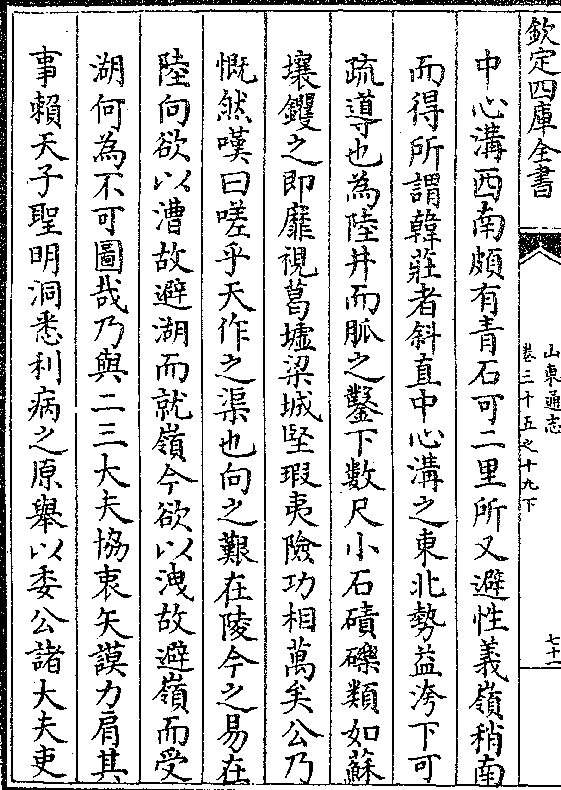 欽定四庫全書
山東通志
卷三十五之十九下
七十一
中心溝西南頗有青石可二里所又避性義嶺稍南
而得所謂韓莊者斜直中心溝之東北勢益洿下可
疏導也為陸井而脈之鑿下數尺小石磧礫類如蘇
壤钁之即靡視葛墟梁城堅瑕夷險功相萬矣公乃
慨然嘆曰嗟乎天作之渠也向之艱在陵今之易在
陸向欲以漕故避湖而就嶺今欲以洩故避嶺而受
湖何為不可圖哉乃與二三大夫協衷矢謨力肩其
事賴天子聖明洞悉利病之原舉以委公諸大夫吏